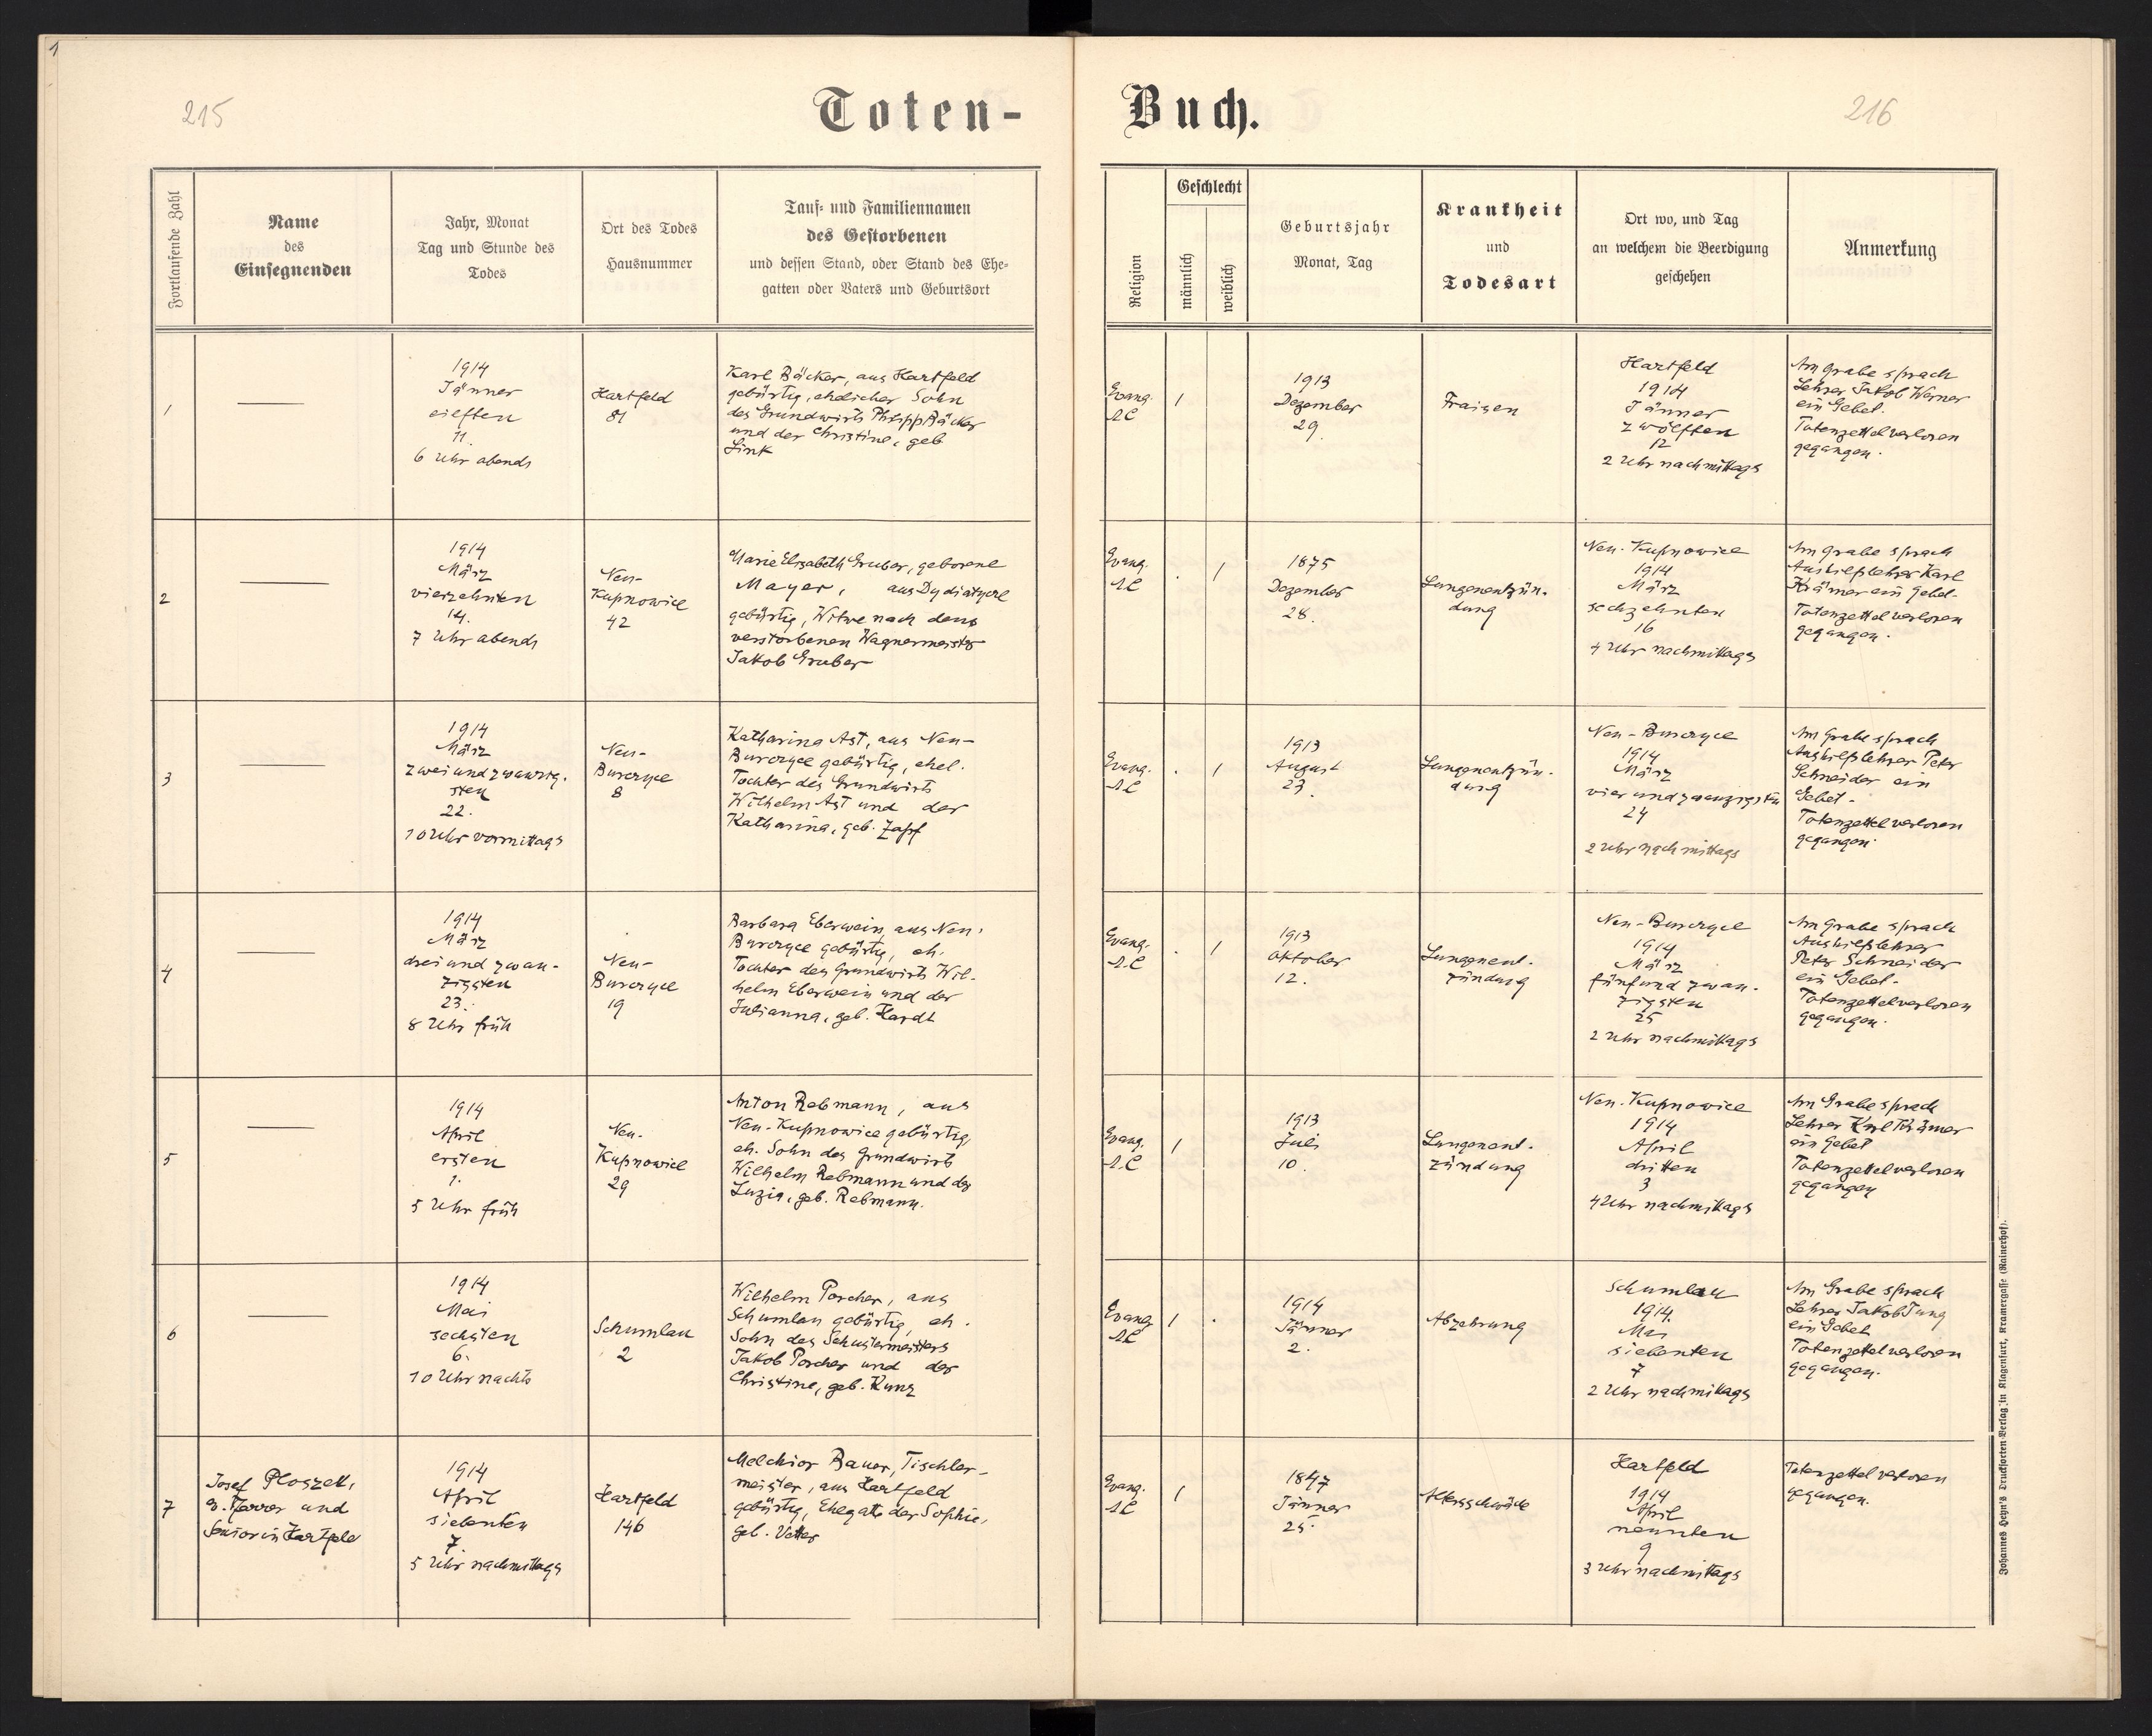 1
215
Toten-
Buch.
216
Fortlaufende Zahl
Name
des
Einsegnenden
Jahr, Monat
Tag und Stunde des
Todes
Ort des Todes
Hausnummer
Tauf- und Familiennamen
des Gestorbenen
und dessen Stand, oder Stand des Ehe-
gatten oder Vaters und Geburtsort
Religion
Geschlecht
männlich
weiblich
Geburtsjahr
Monat, Tag
Krankheit
und
Todesart
Ort wo, und Tag
an welchem die Beerdigung
geschehen
Anmerkung
1
1914
Jänner
eilften
11.
6 Uhr abends
Hartfeld
81
Karl Bäcker, aus Hartfeld
gebürtig, ehelicher Sohn
des Grundwirts Philipp Bäcker
und der Christine, geb
Link
Evang.
A.C
1
1913
Dezember
29.
Fraisen
Hartfeld
1914
Jänner
zwölften
12
2 Uhr nachmittags
Am Grabe sprach
Lehrer Jakob Werner
ein Gebet.
Totenzettel verloren
gegangen.
2
1914
März
vierzehnten
14.
7 Uhr abends
Neu-
Kupnowice
42
Marie Elisabeth Gruber, geborene
Mayer, aus
gebürtig, Witwe nach dem
verstorbenen Wagnermeister
Jakob Gruber
Evang.
A.C
. 1
1875
Dezember
28.
Lungenentzün-
dung
Neu-Kupnowice
1914
März
sechzehnten
16
4 Uhr nachmittags
Am Grabe sprach
Aushilfslehrer Karl
Krämer ein Gebet.
Totenzettel verloren
gegangen.
3
1914
März
zweiundzwanzig-
sten
22.
10 Uhr vormittags
Neu-
Burczyce
8
Katharina Ast, aus Neu-
Burczyce gebürtig, ehel.
Tochter des Grundwirts
Wilhelm Ast und der
Katharina, geb. Zapf
Evang.
A.C
. 1
1913
August
23.
Lungenentzün-
dung
Neu-Burczyce
1914
März
vierundzwanzigsten
24
2 Uhr nachmittags
Am Grabe sprach
Aushilfslehrer Peter
Schneider ein
Gebet.
Totenzettel verloren
gegangen.
4
1914
März
dreiundzwan-
zigsten
23.
8 Uhr früh
Neu-
Burczyce
19
Barbara Eberwein, aus Neu-
Burczyce gebürtig, eh.
Tochter des Grundwirts Wil-
helm Eberwein und der
Julianna, geb. Hardt
Evang.
A.C
. 1
1913
Oktober
12.
Lungenent-
zündung
Neu-Burczyce
1914
März
fünfundzwan-
zigsten
25
2 Uhr nachmittags
Am Grabe sprach
Aushilfslehrer
Peter Schneider
ein Gebet.
Totenzettel verloren
gegangen.
5
1914
April
ersten
1.
5 Uhr früh
Neu-
Kupnowice
29
Anton Rebmann, aus
Neu-Kupnowice gebürtig,
eh. Sohn des Grundwirts
Wilhelm Rebmann und der
Luzia, geb. Rebmann.
Evang.
A.C
1
1913
Juli
10.
Lungenent-
zündung
Neu-Kupnowice
1914
April
dritten
3
4 Uhr nachmittags
Am Grabe sprach
Lehrer Karl Krämer
ein Gebet
Totenzettel verloren
gegangen
6
1914
Mai
sechsten
6.
10 Uhr nachts
Schumlau
2
Wilhelm Porcher, aus
Schumlau gebürtig, eh.
Sohn des Schustermeisters
Jakob Porcher und der
Christine, geb. Kunz
Evang.
A.C
1 .
1914
Jänner
2.
Abzehrung
Schumlau
1914.
Mai
siebenten
7
2 Uhr nachmittags
Am Grabe sprach
Lehrer Jakob Jung
ein Gebet
Totenzettel verloren
gegangen.
7
Josef Ploszek,
e. Pfarrer und
Senior in Hartfeld
1914
April
siebenten
7.
5 Uhr nachmittags
Hartfeld
146
Melchior Bauer, Tischler-
meister, aus Hartfeld
gebürtig, Ehegatte der Sophie,
geb. Vetter
Evang.
A.C
1
1847
Jänner
25.
Altersschwäche
Hartfeld
1914
April
neunten
9
3 Uhr nachmittags
Totenzettel verloren
gegangen.
Johannes Heyn's Drucksorten-Verlag in Klagenfurt, Kramergasse (Rainerhof).